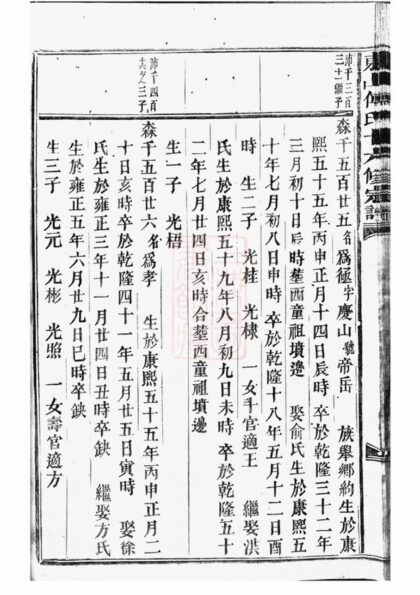 沛千三百
三十繼子
森千五百廿五 名為極 字慶山 號帝岳 族舉鄉約生於康
熙五十五年丙申正月十四日辰時 卒於乾隆三十二年
三月初十日辰時塟西童祖墳邊 娶俞氏生於康熙五
十年七月初八日申時 卒於乾隆十八年五月十二日酉
時 生二子 光桂 光棣 一女斗官適王 繼娶洪
氏生於康熙五十九年八月初九日未時 卒於乾隆五十
二年七月廿四日亥時合塟西童祖墳邊
生一子 光梧
沛千四百
之三子
森千五百廿六 名為孝 生於康熙五十五年丙申正月二
十日亥時卒於乾隆四十一年五月廿五日寅時 娶徐
氏生於雍正三年十一月廿四日丑時卒缺 繼娶方氏
生於雍正五年六月廿九日巳時卒缺
生三子 光元 光彬 光照 一女壽官適方